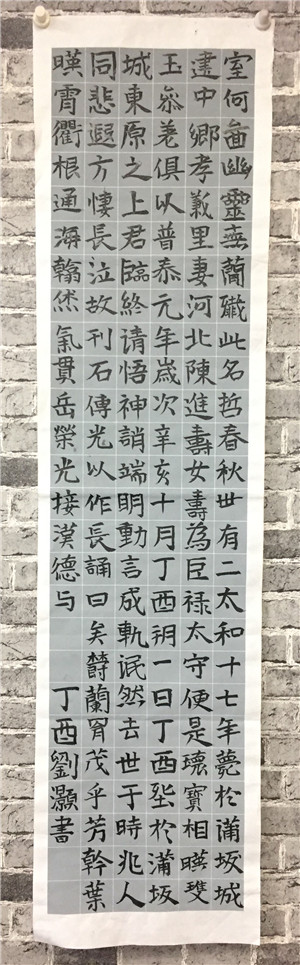 室何啚幽靈無蕳殲此名哲春秋世有二太和十七年薨於蒲坂城
建中鄉孝義里妻河北陳進壽女壽為巨禄太守便是瓌寶相暎瓊
玉參差俱以普泰元年歲次辛亥十月丁酉朔一日丁酉塟於蒲坂
城東原之上君臨終清悟神誚端明動言成軌泯然去世于時兆人
同悲遐方悽長泣故刊石傳光以作長誦曰矣欝蘭胄茂乎芳幹葉
暎霄衢根通海翰烋氣貫岳榮光接漢德与 丁酉劉灝書